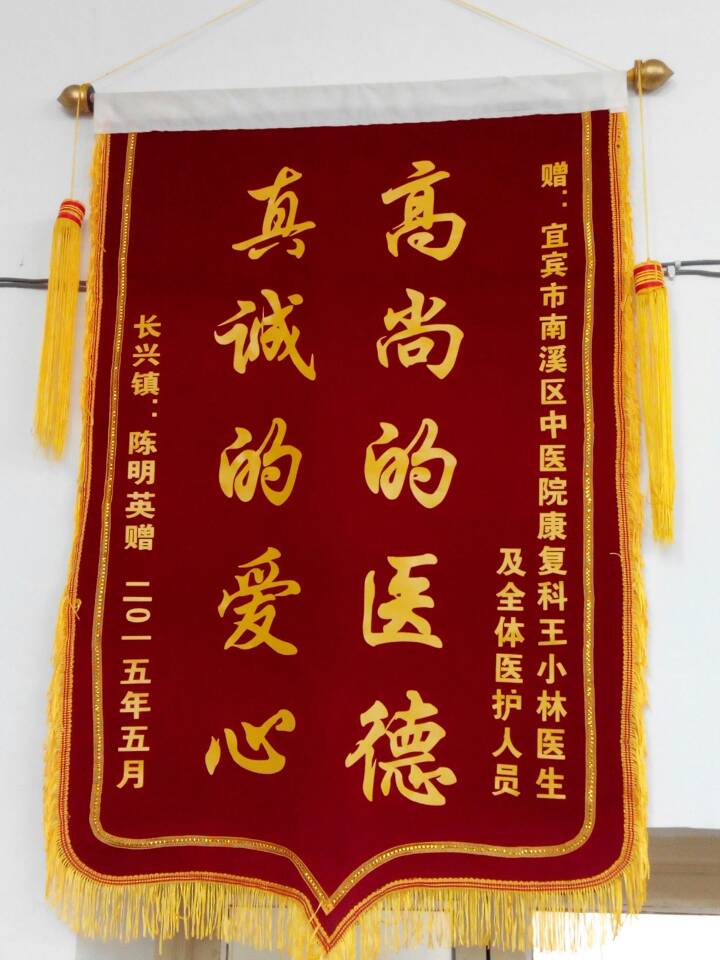 赠：宜宾市南溪区中医院康复科王小林医生
及全体医护人员
高尚的医德
真诚的爱心
长兴镇：陈明英赠 二〇一五年五月